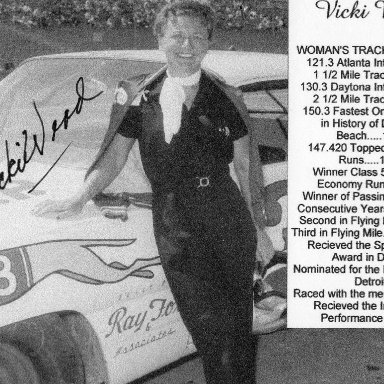 Vicki
WOMAN'S TRACK
121.3 Atlanta Int
1 1/2 Mile Trac
130.3 Daytona Int
2 1/2 Mile Trac
150.3 Fastest On
in History of D
Beach.....
147.420 Topped
Runs.....
Winner Class 5
Economy Run
Winner of Passin
Consecutive Years
Second in Flying
Third in Flying Mile.
Recieved the Sp
Award in D
Nominated for the
Detroi
Raced with the me
Recieved the In
Performance
Vicki Wood
8
Ray Fo
&
Associates